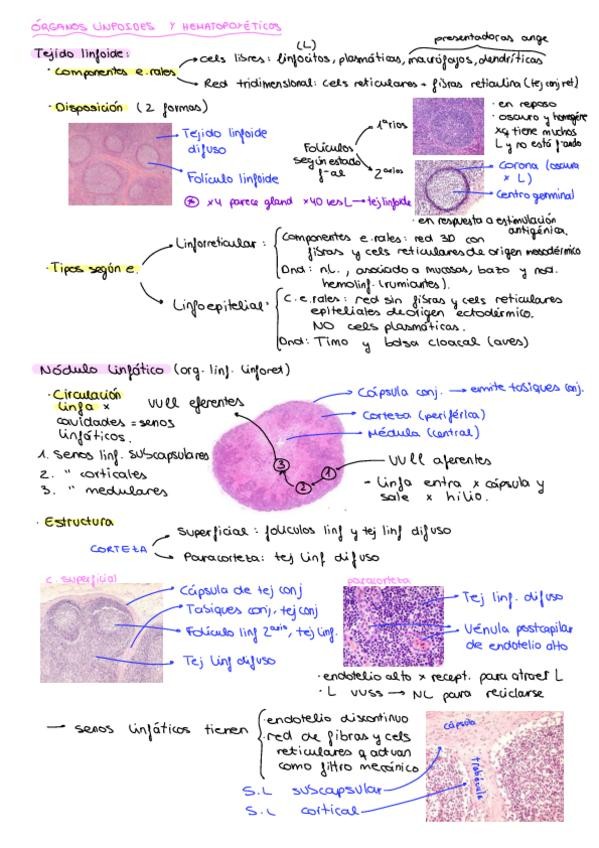 ÓRGANOS LINFOIDES Y HEMATOPOYÉTICOS
presentadoras ange
(L)
Tejido linfoide:
cels libres: linfocitos, plasmáticas, macrófagos, dendríticas
· Componentes e.rales
Red tridimensional: cels reticulares + fibras reticulina (tej conj ret)
· Disposición (2 formas)
Tejido linfoide
difuso
Folículo linfoide
Folículos
según estado
f-al
1arios
2arios
· en reposo
· oscuro y homogéne
xq tiene muchos
L y no está f-ando
Corona (oscura
x L)
Centro germinal
* x4 parece gland x40 ves L → tej linfoide
· en respuesta a estimulación
antigénica.
· Tipos según e.
Linforreticular:
Componentes e.rales: red 3D con
fibras y cels reticulares de origen mesodérmico
Dnd: nL., asociado a mucosas, bazo y nod.
hemolinf. (rumiantes).
Linfoepitelial:
C.e.rales: red sin fibras y cels reticulares
epiteliales de origen ectodérmico.
NO cels plasmáticas.
Dnd: Timo y bolsa cloacal (aves)
Nódulo linfático (org. linf. linforet)
· Circulación
linfa x
cavidades = senos
linfáticos.
VVLL eferentes
1. Senos linf. subscapsulares
2. " corticales
3. " medulares
3
2
1
Cápsula conj. → emite tabiques conj.
Corteza (periférica)
Médula (central)
VVLL aferentes
- Linfa entra x cápsula y
sale x hilio.
· Estructura
CORTEZA
Superficial: folículos linf y tej linf difuso
Paracorteza: tej linf difuso
C. superficial
Cápsula de tej conj
Tabiques conj, tej conj
Folículo linf 2ario, tej linf.
Tej linf difuso
paracorteza
Tej linf. difuso
Vénula postcapilar
de endotelio alto
· endotelio alto x recept. para atraer L
· L vvss → NL para reciclarse
→ senos linfáticos tienen
· endotelio discontinuo
· red de fibras y cels
reticulares q actúan
como filtro mecánico
S.L subscapsular
S.L cortical
cápsula
trabécula